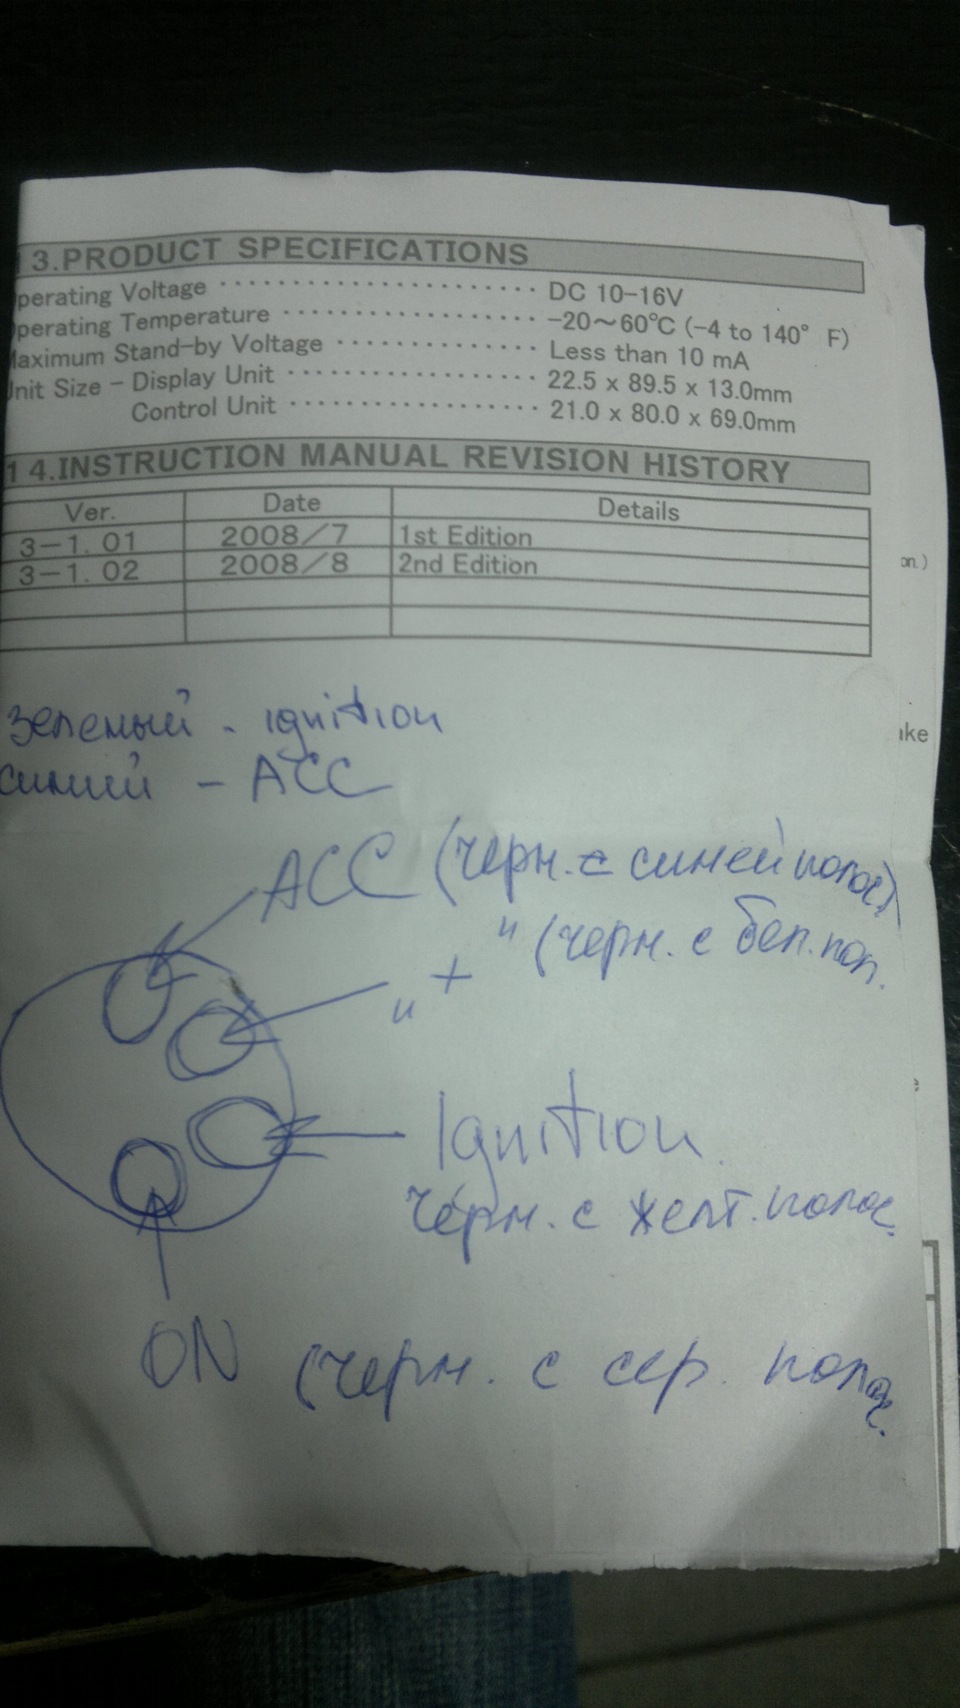 13.PRODUCT SPECIFICATIONS
perating Voltage ······················ DC 10-16V
perating Temperature ·················· -20~60℃ (-4 to 140° F)
aximum Stand-by Voltage ·············· Less than 10 mA
nit Size - Display Unit ·················· 22.5 x 89.5 x 13.0mm
Control Unit ·················· 21.0 x 80.0 x 69.0mm
14.INSTRUCTION MANUAL REVISION HISTORY
Ver. Date Details
3-1. 01 2008/7 1st Edition
3-1. 02 2008/8 2nd Edition
on.)
ake
зеленый - ignition
синий - ACC
ACC (черн. с синей полос)
"+" (черн. с бел. пол.
Ignition
черн. с желт. полос.
ON (черн. с сер. полос.
e